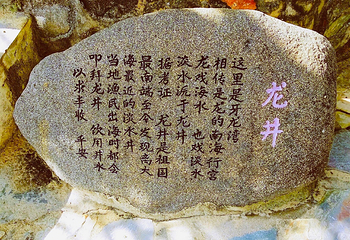 龙井
这里是牙龙湾
相传是龙的南海行宫
龙戏海水 也戏淡水
淡水沉于龙井
据考证 龙井是祖国
最南端至今发现离大
海最近的淡水井
当地渔民出海时都会
叩拜龙井 饮用井水
以求丰收 平安